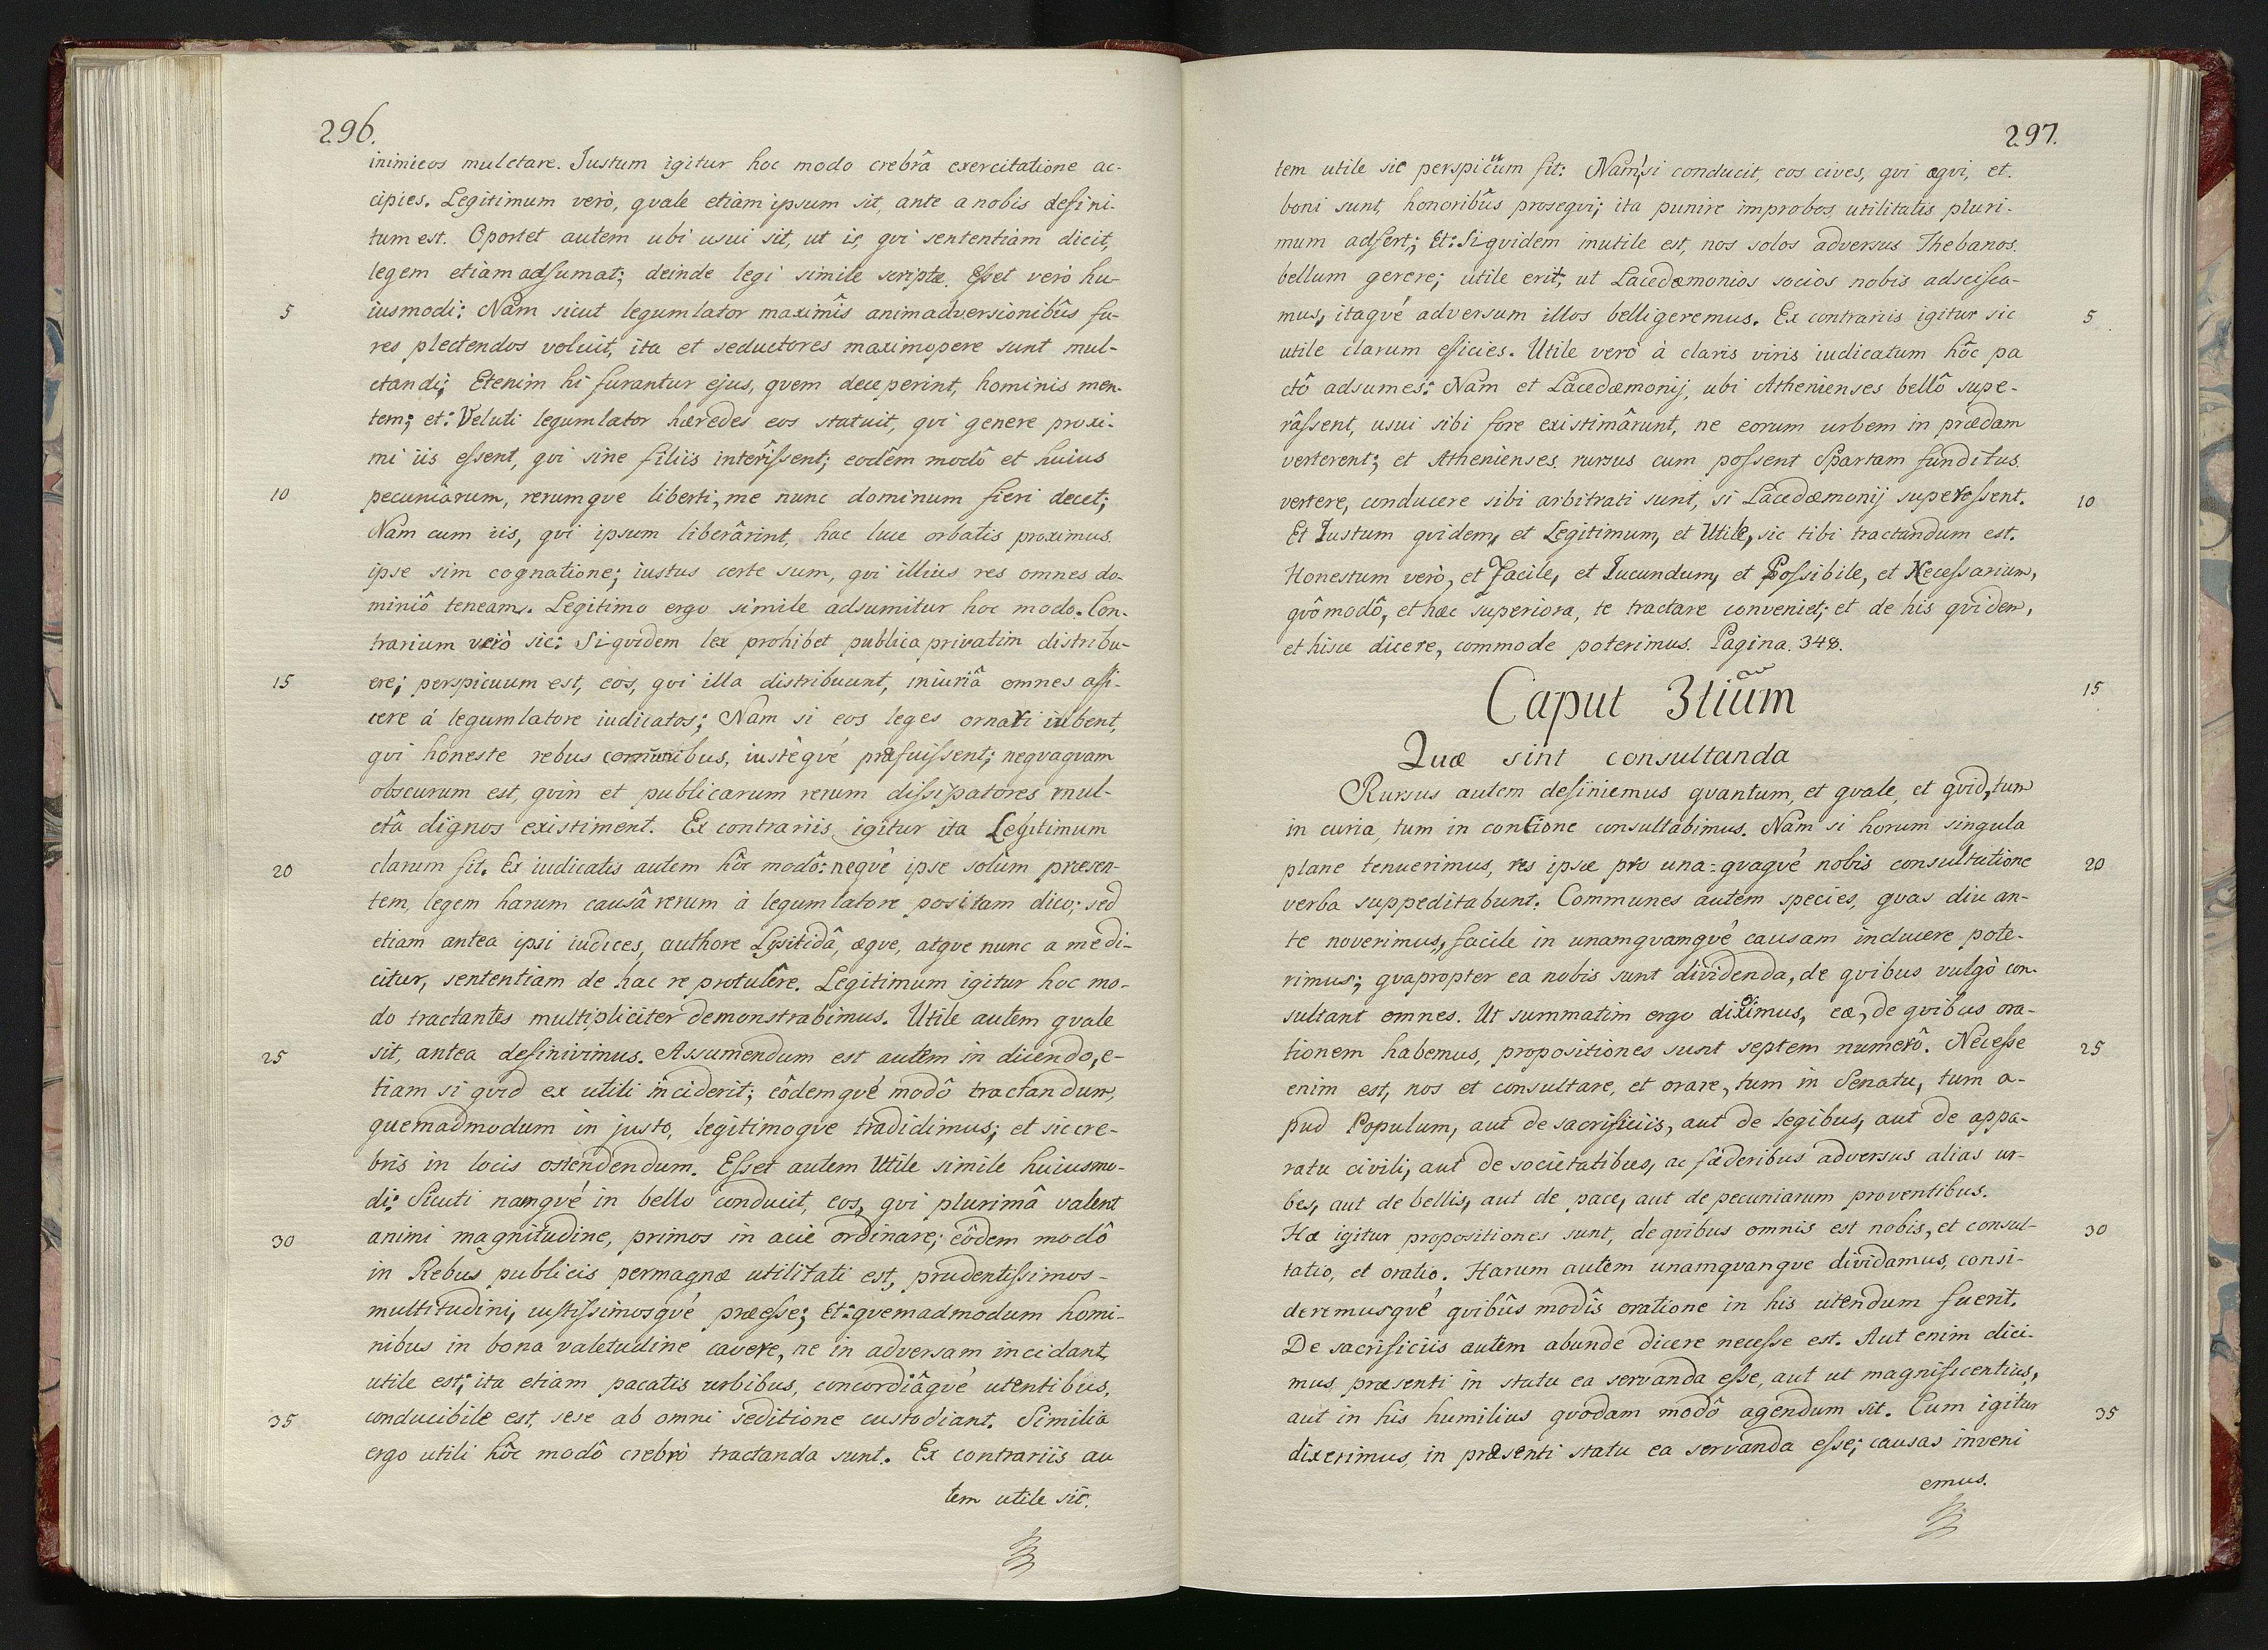 296.
inimicos mulctare. Iustum igitur hoc modo crebrâ exercitatione ac-
cipies. Legitimum verò, qvale etiam ipsum sit, ante a nobis defini-
tum est. Oportet autem ubi usui sit, ut is, qvi sententiam dicit,
legem etiam adsumat; deinde legi simile scriptæ. Esset verò hu-
5 iusmodi: Nam sicut legumlator maximîs animadversionibûs fu-
res plectendos voluit, ita et seductores maximopere sunt mul-
ctandi; Etenim hi furantur ejus, qvem deceperint, hominis men-
tem; et: Veluti legumlator hæredes eos statuit, qvi genere proxi-
mi iis essent, qvi sine filiis interîssent; eodêm modô et huius
10 pecuniarum, rerumqve liberti, me nunc dominum fieri decet;
Nam cum iis, qvi ipsum liberârint, hac luce orbatis proximus
ipse sim cognatione; iustus certe sum, qvi illius res omnes do-
miniô teneam. Legitimo ergo simile adsumitur hoc modo. Con-
trarium verò sic: Siqvidem lex prohibet publica privatim distribu-
15 ere; perspicuum est, eos, qvi illa distribuunt, iniuriâ omnes affi-
cere á legumlatore iudicatos; Nam si eos leges ornari iubent,
qvi honeste rebus communibus, iustêqvé præfuissent; neqvaqvam
obscurum est, qvin et publicarum rerum dissipatores mul-
ctâ dignos existiment. Ex contrariis igitur ita Legitimum
20 clarum fit. Ex iudicatis autem hôc modô: neqvé ipse solùm præsen-
tem, legem harum causâ rerum à legumlatore positam dico; sed
etiam antea ipsi iudices, authore Lysitidâ, æqve, atqve nunc a me di-
citur, sententiam de hac re protulêre. Legitimum igitur hoc mo-
do tractantes multipliciter demonstrabimus. Utile autem qvale
25 sit, antea definivimus. Assumendum est autem in dicendo, e-
tiam si qvid ex utili inciderit; eôdemqvé modô tractandum,
quemadmodum in justo, legitimoqve tradidimus; et sic cre-
bris in locis ostendendum. Esset autem Utile simile huiusmo-
di: Sicuti namqvé in bello conducit, eos, qvi plurimâ valent
30 animi magnitudine, primos in acie ordinare; eôdem modô
in Rebus publicis permagnæ utilitati est, prudentissimos-
multitudini, iustissimosqvé præesse; Et: qvemadmodum homi-
nibus in bona valetudine cavere, ne in adversam incidant,
utile est; ita etiam pacatis urbibus, concordiâqvé utentibus,
35 conducibile est, sese ab omni seditione custodiant. Similia
ergo utili hôc modô crebrò tractanda sunt. Ex contrariis au
tem utile sic.
297.
tem utile sic perspicuum fit: Nam, si conducit, eos cives, qvi æqvi, et
boni sunt, honoribûs proseqvi; ita punire improbos, utilitatis pluri-
mum adfert; Et: Siqvidem inutile est, nos solos adversus Thebanos
bellum gerere; utile erit, ut Lacedæmonios socios nobis adscisca-
5 mus, itaqvé adversum illos belligeremus. Ex contrariis igitur sic
utile clarum efficies. Utile verò à claris viris iudicatum hôc pa
ctô adsumes: Nam et Lacedæmonij, ubi Athenienses bellô supe-
râssent, usui sibi fore existimârunt, ne eorum urbem in prædam
verterent; et Athenienses rursus cum possent Spartam funditus
10 vertere, conducere sibi arbitrati sunt, si Lacedæmonij superessent.
Et Iustum qvidem, et Legitimum, et Utile, sic tibi tractandum est.
Honestum verò, et Facile, et Iucundum, et Possibile, et Necessarium,
qvô modô, et hæc superiora, te tractare conveniet; et de his qvidem,
et hisce dicere, commode poterimus. Pagina. 348.
15 Caput 3tium
Quæ sint consultanda
Rursus autem definiemus qvantum, et qvale, et qvid, tum
in curia, tum in contione consultabimus. Nam si horum singula
20 plane tenuerimus, res ipsæ pro una=qvaqvé nobis consultatione
verba suppeditabunt. Communes autem species, qvas diu an-
te noverimus, facile in unamqvamqvé causam inducere pote-
rimus; qvapropter ea nobis sunt dividenda, de qvibus vulgò con-
sultant omnes. Ut summatim ergo diximus, eæ, de qvibus ora-
25 tionem habemus, propositiones sunt septem numerô. Necesse
enim est, nos et consultare, et orare, tum in Senatu, tum a-
pud Populum, aut de sacrificiis, aut de legibus, aut de appa-
ratu civili, aut de societatibus, ac fæderibus adversus alias ur-
bes, aut de bellis, aut de pace, aut de pecuniarum proventibus.
30 Hæ igitur propositiones sunt, de qvibus omnis est nobis, et consul-
tatio, et oratio. Harum autem unamqvanqve dividamus, consi-
deremusqvé qvibûs modîs oratione in his utendum fuerit.
De sacrificiis autem abunde dicere necesse est. Aut enim dici-
mus, præsenti in statu ea servanda esse, aut ut magnificentius,
35 aut in his humilius qvodam modô agendum sit. Cum igitur
dixerimus, in præsenti statu ea servanda esse; causas inveni
emus.